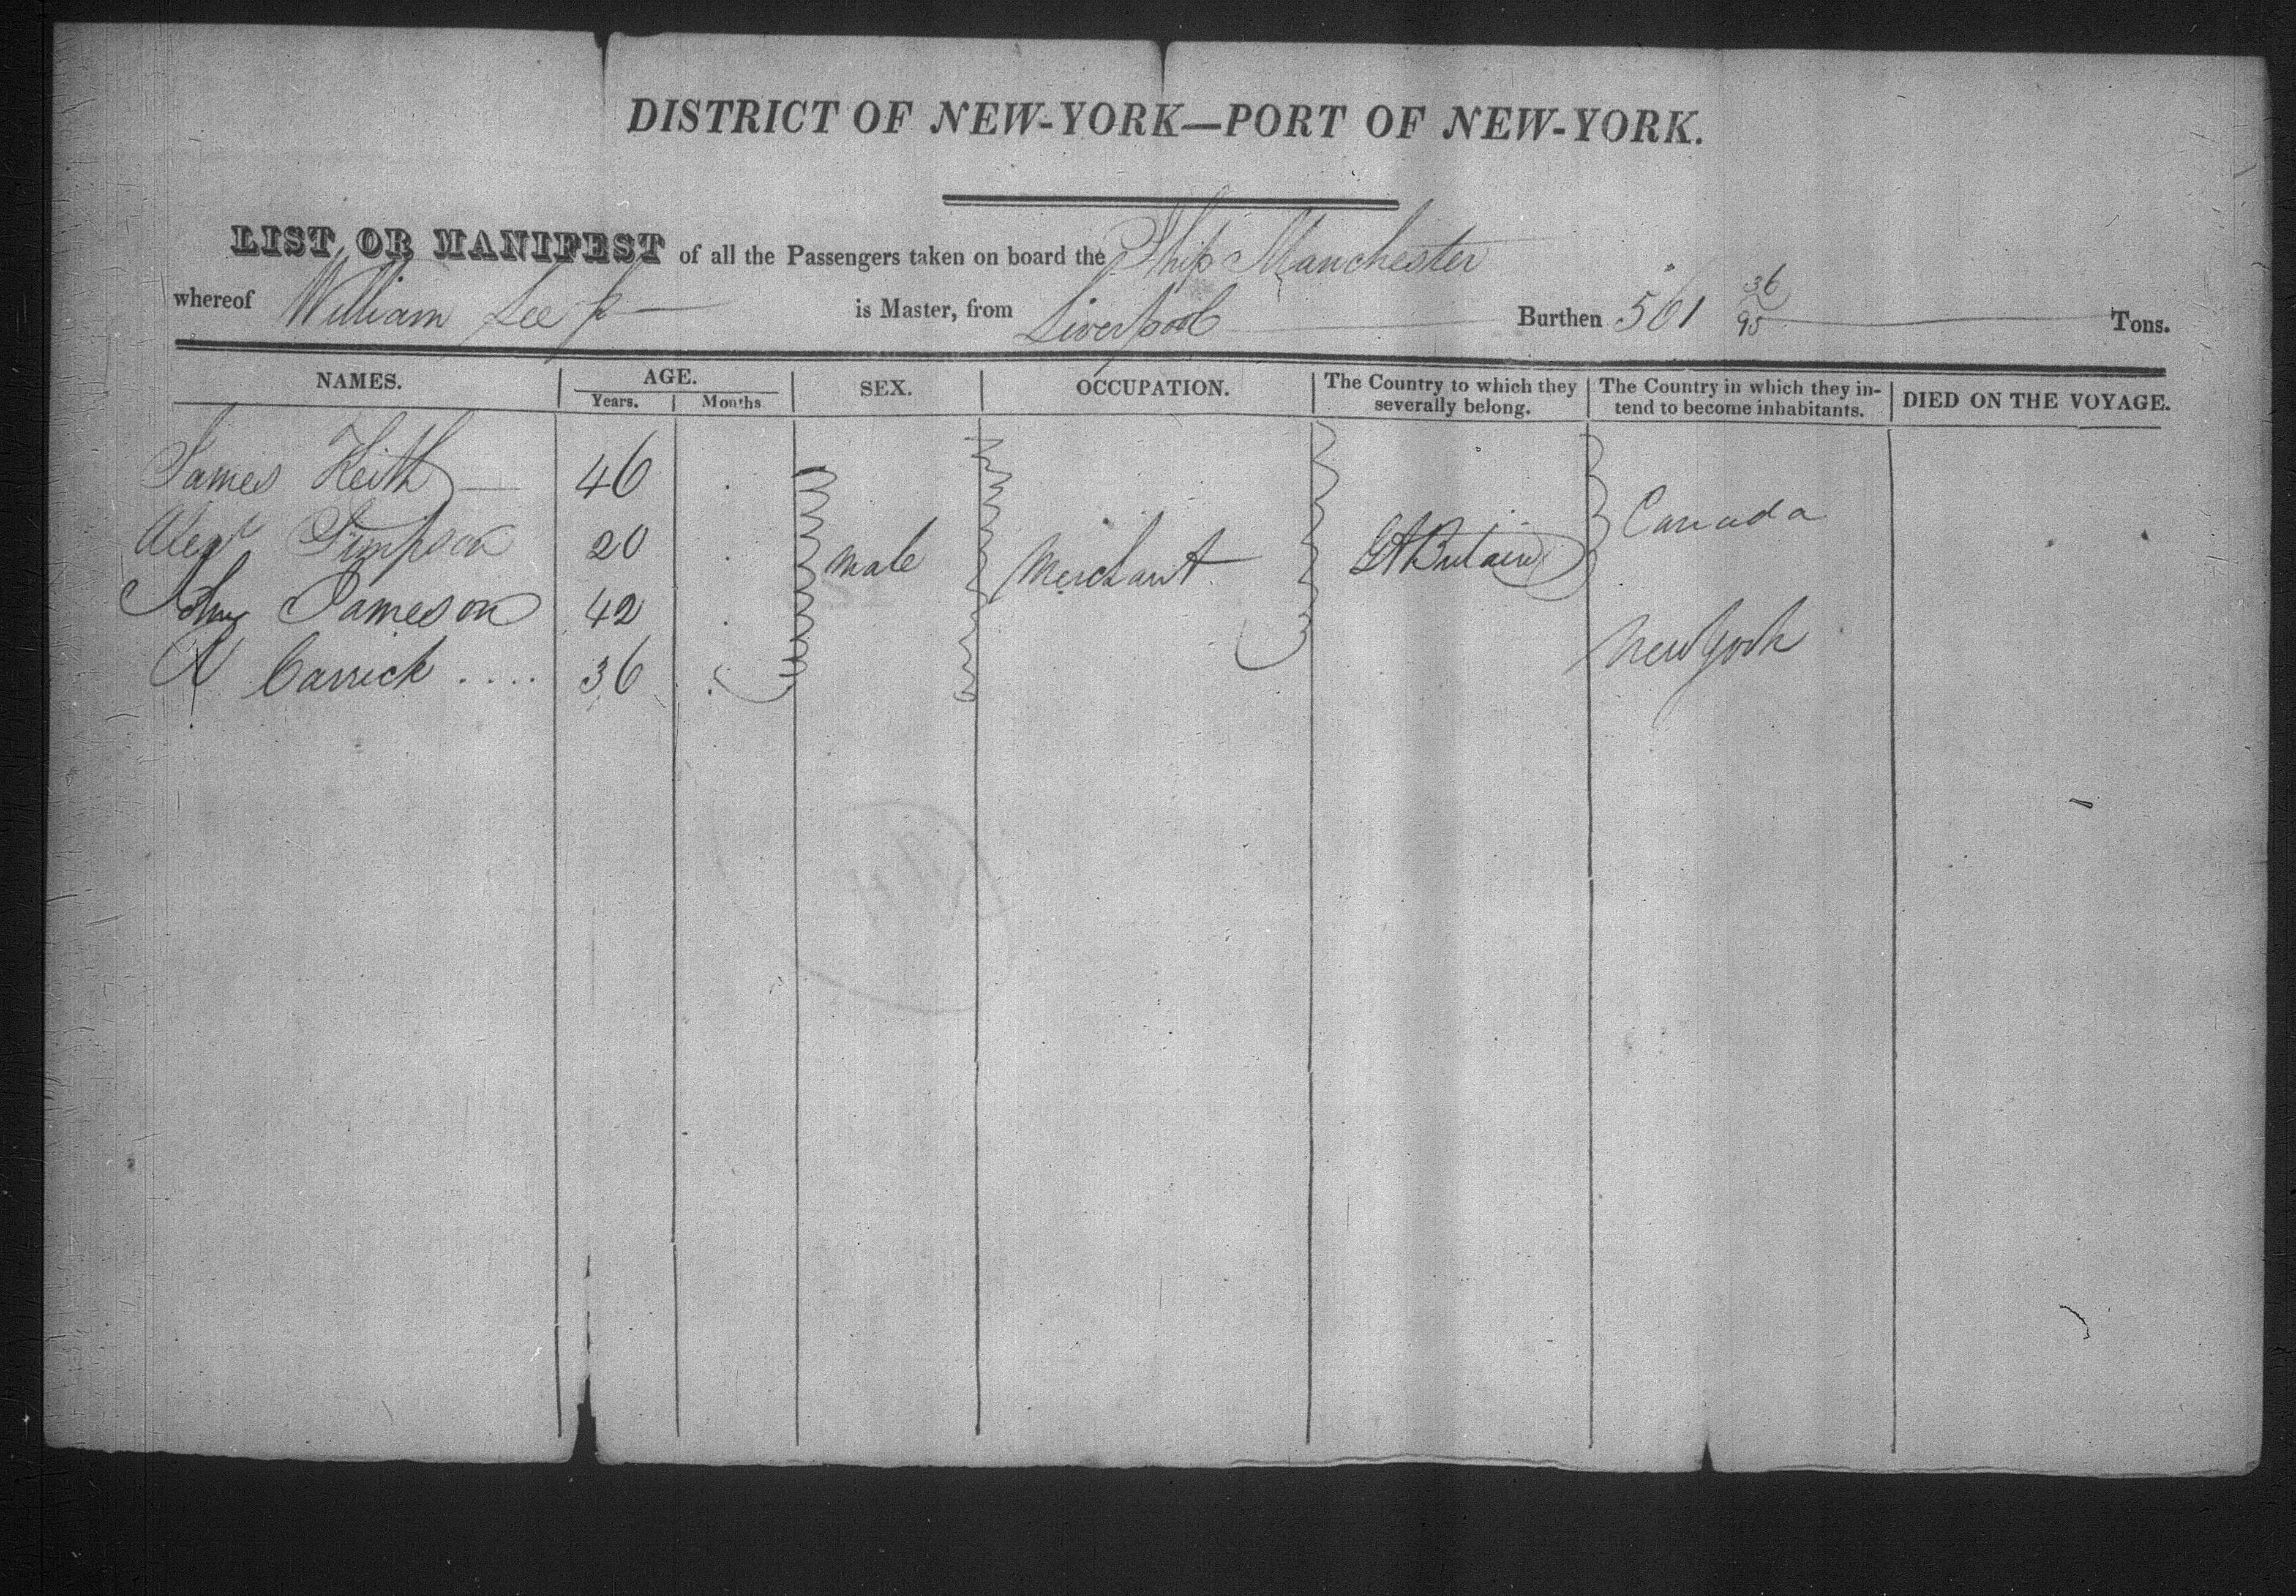 DISTRICT OF NEW-YORK—PORT OF NEW-YORK.
LIST OR MANIFEST of all the Passengers taken on board the Ship Manchester
whereof William Lee Jr is Master, from Liverpool Burthen 561 36/95 Tons.
NAMES. AGE. SEX. OCCUPATION. The Country to which they severally belong. The Country in which they intend to become inhabitants. DIED ON THE VOYAGE.
Years. Months
James Keith 46
Alexr Simpson 20 Canada
male Merchant Gt Britain
John Jameson 42
R Carrick .... 36 New York